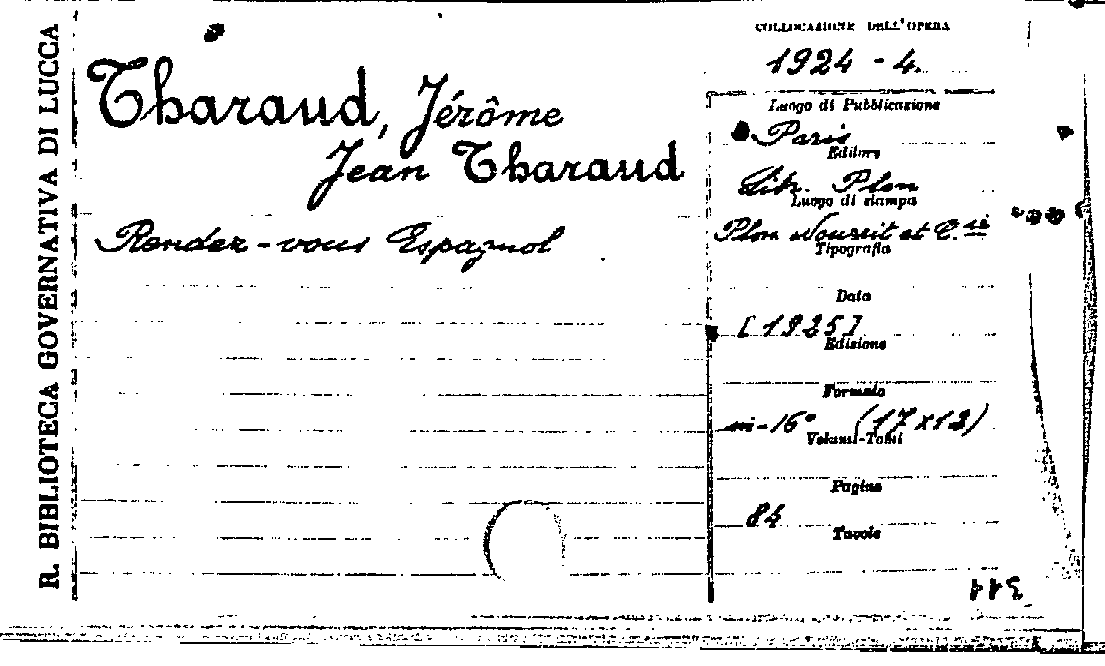 R. BIBLIOTECA GOVERNATIVA DI LUCCA
Tharaud, Jérôme
Jean Tharaud
Rendez-vous Espagnol
COLLOCAZIONE DELL'OPERA
1924 - 4.
Luogo di Pubblicazione
Paris
Editore
Libr. Plon
Luogo di stampa
Plon Nourrit et C.ie
Tipografia
Data
[1925]
Edizione
Formato
in-16° (17x12)
Volumi-Tomi
Pagine
84
Tavole